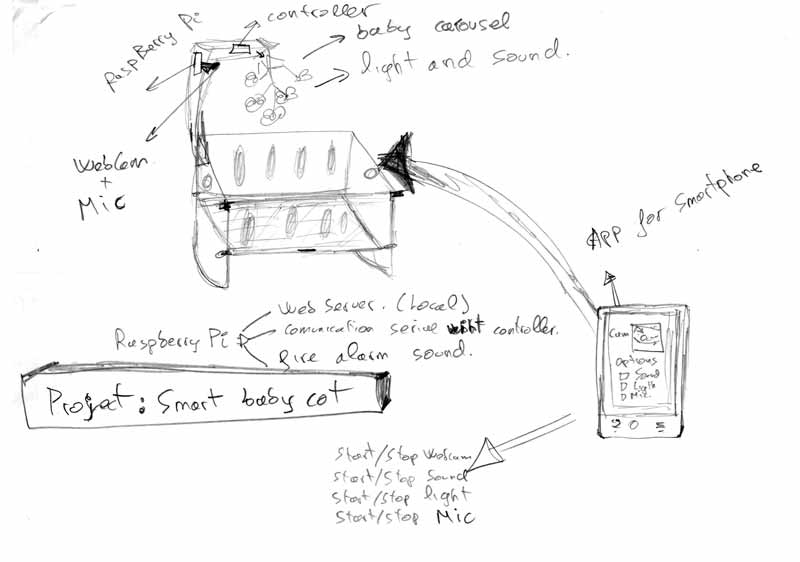 RaspBerry Pi
controller
baby carousel
light and sound.
WebCam
+
Mic
App for Smartphone
Raspberry Pi
Web Server. (Local)
comunication serive controller.
fire alarm sound.
Cam
Options
Sound
Light
Mic.
Project: Smart baby cot
Start/Stop Webcam
Start/Stop Sound
Start/Stop light
Start/stop Mic